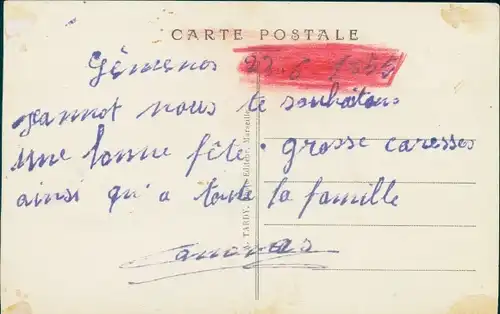 CARTE POSTALE
Gémenos 23.6 1935
Jeannot nous te souhaitons
une bonne fête. grosse caresses
ainsi qu'a toute la famille
Canovas
TARDY, Editeur, Marseille